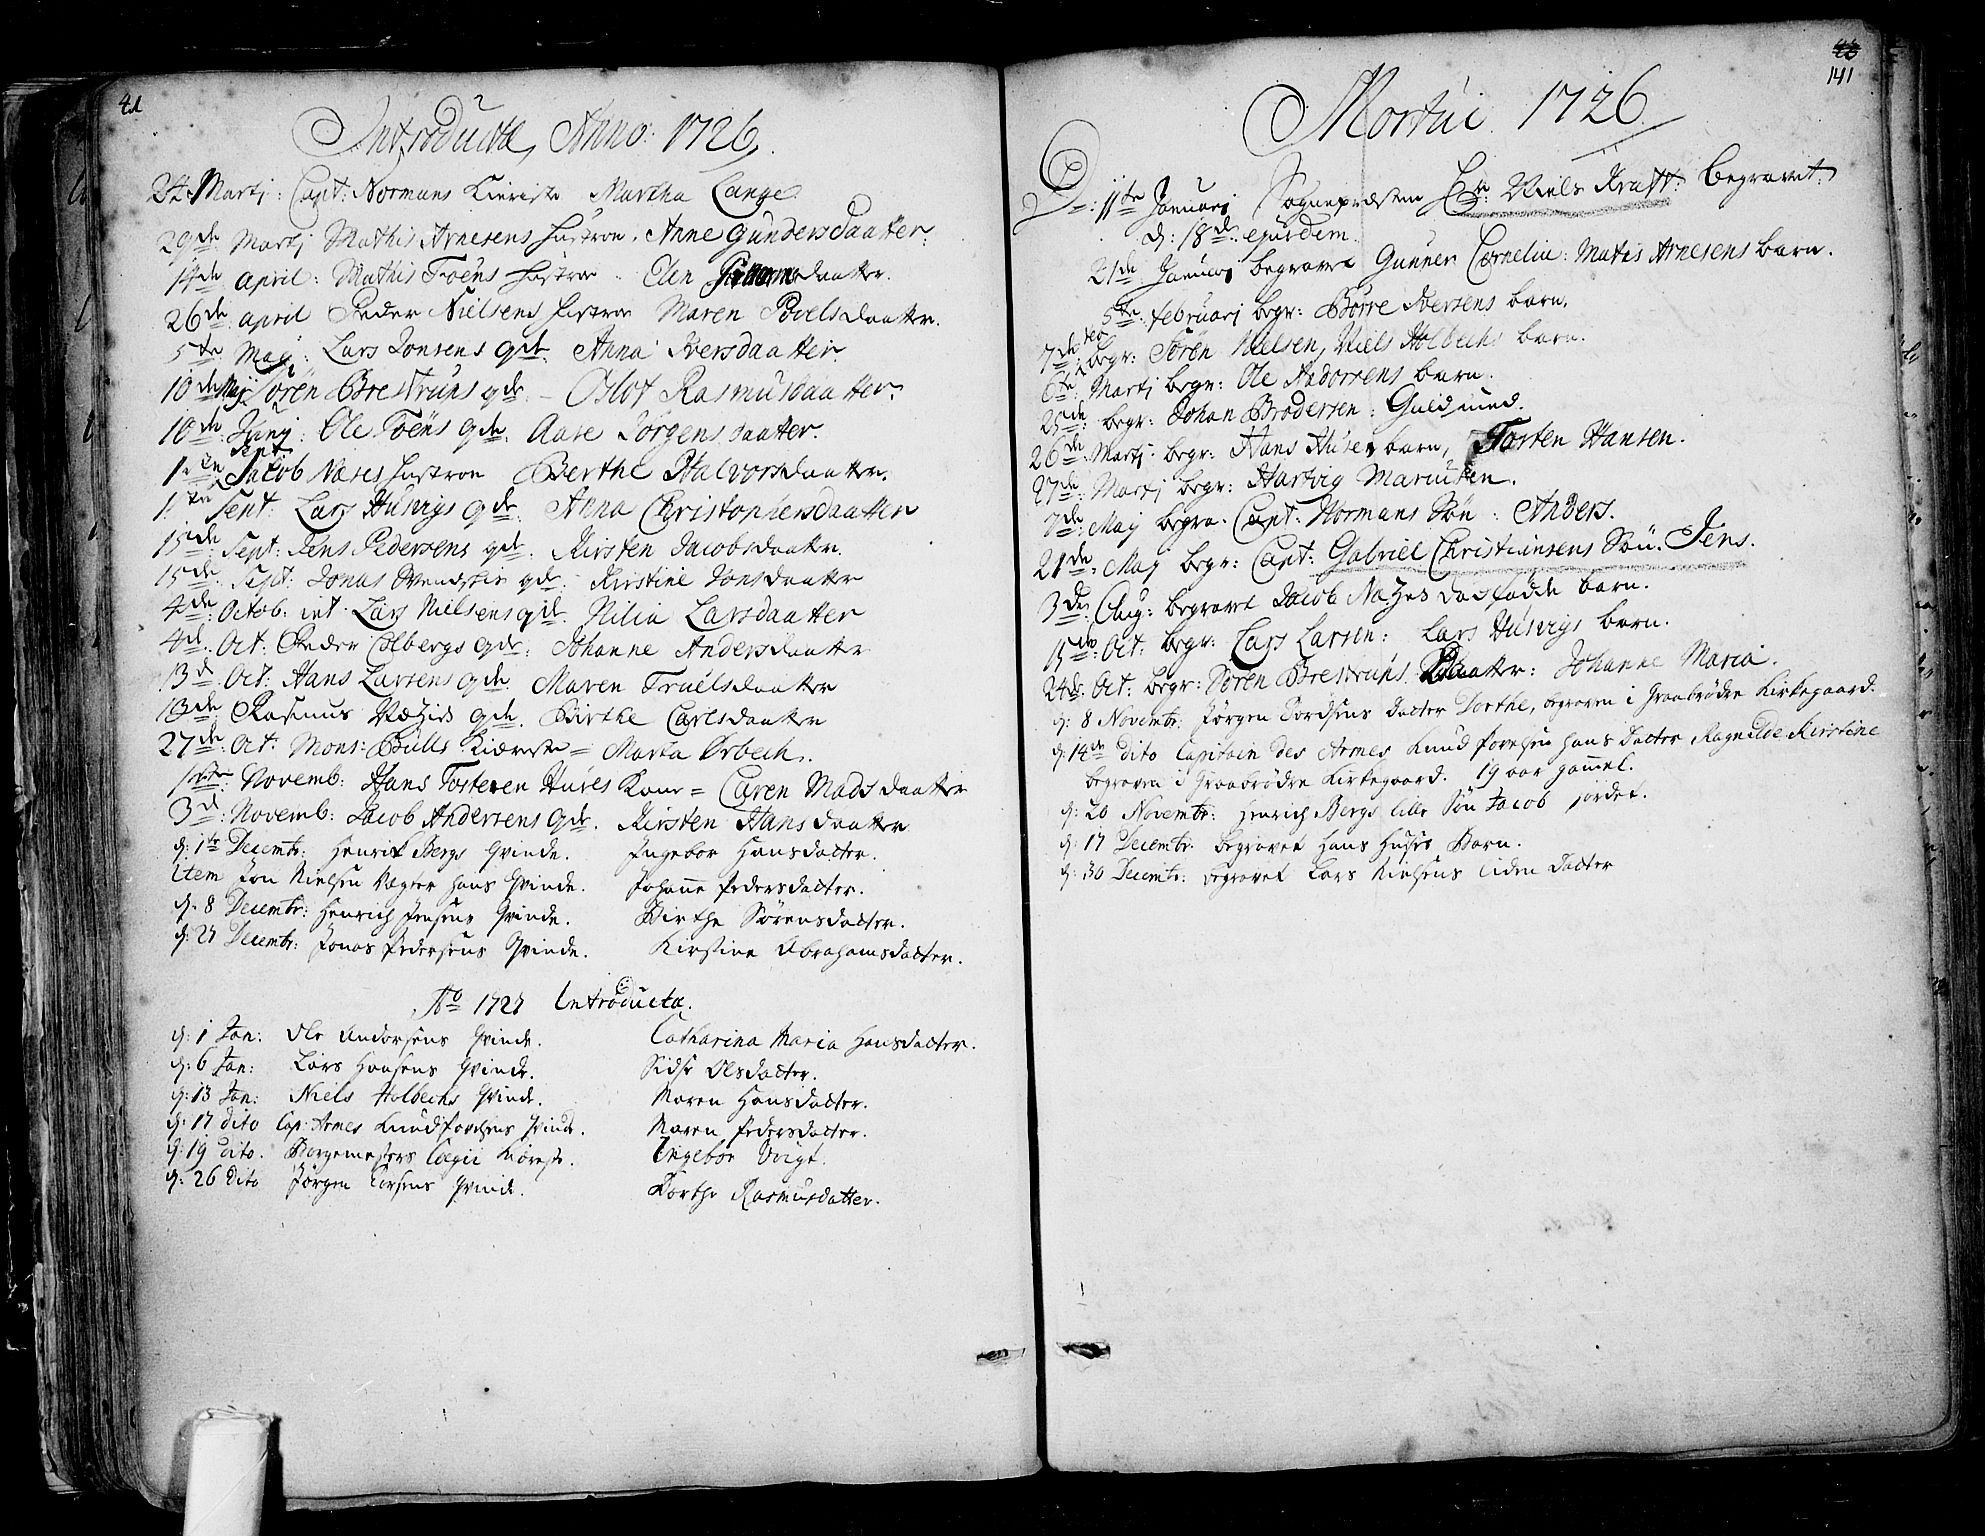 41
Introductæ, Anno: 1726,
24. Martj: Capt: Normans Kiereste Martha Lange
29de Martj Mathis Arnesens Hustroe. Anne Gundersdaatter.
14de April: Mathis Foëns Hustroe Elen daatter.
26de April Peder Nielsens Hustroe Maren Povelsdaatter.
5te Maj: Lars Jonsens qde. Anna Iversdaatter
10de Maj Sören Brestruns qde. – Oslot Rasmusdaatter.
10de Junj: Ole Foëns qde. Aase Jörgensdaatter.
1te Sept Jacob Næses Hustroe Berthe Halvorsdaatter.
1te Sept: Lars Husvigs qde Anna Christophersdaatter
15de Sept: Jens Pedersens qde. Kirsten Jacobsdaatter.
15de Sept: Jonas qde. Kirstine Jonsdaatter
4de Octob: int. Lars Nielsens qde. Nilia Larsdaatter
4de Oct: Peder Colbergs qde: Johanne Andersdaatter
13d Oct: Hans Larsens qde. Maren Truelsdaatter
13de Rasmus qde. Birthe Carlsdaatter
27de Oct: Mons: Bülls Kiereste = Marta Ørbech.
1te Novemb: Hans Tostesen Huses Kone = Caren Madsdaatter
3d: Novemb: Jacob Andersens qde. Kirsten Hansdaatter
d: 1te Decembr: Henrik Bergs Qvinde. Ingebor Hansdatter.
Item Jon Nielsen Vegter hans Qvinde. Johanne Pedersdatter.
d. 8 Decembr: Henrich Jensens Qvinde. Birthe Sörensdatter.
d: 27 Decembr: Jonas Pedersens Qvinde. Kirstine Abrahamsdatter.
Ao 1727 Introducta.
d: 1 Jan: Ole Andorsens Qvinde. Catharina Maria Hansdatter.
d: 6 Jan: Lars Hansens Qvinde. Sidse Olsdatter.
d: 13 Jan: Niels Holbechs Qvinde. Maren Hansdatter.
d: 17 dito Cap: Armes Knud Povelsens Qvinde. Maren Pedersdatter.
d: 19 dito. Borgemesters Coegii Kiereste. Ingebor Voigt.
d: 26 dito Jörgen Torsens Qvinde. Dorthe Rasmusdatter.
48
141
Mortui 1726
D: 11te Januarj Sognepræsten Hr: Niels Kraft. begravet.
d: 18de ejusdem.
21de Januarj begravet Gunner Cornelia: Matis Arnesens barn.
5te februarj begr: Börre Iversens barn.
7de feb begr: Sören Nielsen, Niels Holbechs barn.
6te Martj begr: Ole Andorsens barn.
25de: begr: Johan Brodersen: Guldsmed.
26de Martj begr: Hans Huses barn, Torsten Hansen.
27de: Martj begr: Hartvig Mariusen.
7de: Maj begra. Capt: Normans Sön: Anders.
21de: Maj begr: Capt: Gabriel Christiansens Sön. Jens.
3de: Aug: begravet Jacob Næses dödfödde barn.
15de: Oct: begr: Lars Larsen: Lars Husvigs barn.
24de: Oct: begr: Sören Brestruns Daatter: Johanne Maria.
d: 8 Novembr: Jörgen Tordsens Datter Dorthe, begraven i Graabrödre Kirkegaard.
d: 14de dito Capitain des Armes Knud Povelsen hans Datter Ragnilde Kirstine
begraven i Graabrödre Kirkegaard. 19 aar gamel.
d: 20 Novembr: Henrich Bergs lille Sön Jacob jordet.
d: 17 Decembr. begravet Hans Huses Barn.
d: 30 Decembr: begravet Lars Nielsens liden Datter